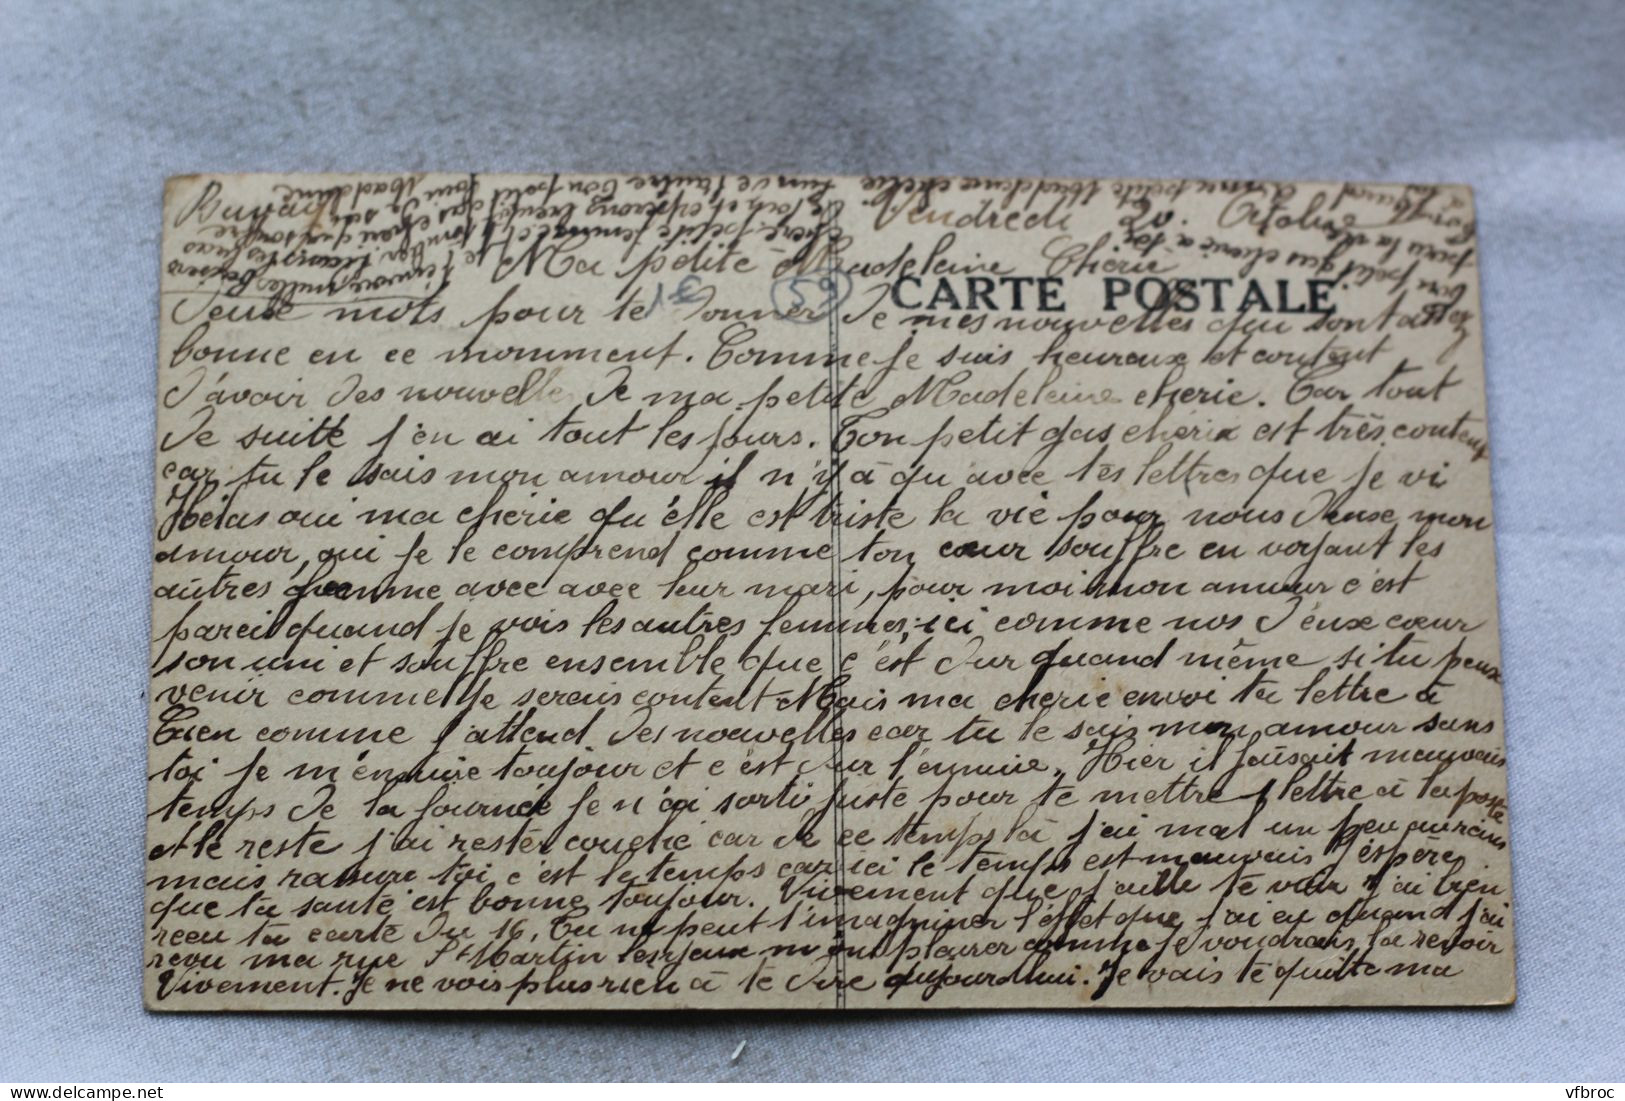 Vendredi 20 Octobre
Ma petite Madeleine Cherie
CARTE POSTALE
65
Deux mots pour te Donner De mes nouvelles qui sont assez
bonne en ce momment. Comme je suis heureux et content
D'avoir Des nouvelle De ma petite Madeleine cherie. Car tout
De suitte j'en ai tout les jours. Ton petit gas cherie est très contenx
car tu le sais mon amour il n'y à qu avec tès lettres que je vi
Hèlas oui ma cherie qu'elle est triste la vie pour nous Deux mon
amour, qui je le comprend comme ton cœur souffre en voyant les
autres femme avec avec leur mari, pour moi mon amour c'est
pareil quand je vois les autres femmes, ici comme nos Deux cœur
son uni et souffre ensemble que c'est Dur quand même si tu peux
venir comme je serais content Mais ma cherie envoi ta lettre à
Caen comme j'attend Des nouvelles car tu le sais mon amour sans
toi je m'ennuie toujour et c'est Dur l'ennuie. Hier il faisait mauvais
temps De la journée je n'ai sorti juste pour te mettre 1 lettre à la poste
et le reste j'ai rester couché car De ce temps là j'ai mal un peu au reins
mais rassure toi c'est le temps car ici le temps est mauvais j'éspère
que ta santé est bonne toujour. Vivement que j'aille te voir j'ai bien
recu ta carte Du 16. Tu ne peut t'imaginer l'effet que j'ai eu quand j'ai
revu ma rue St Martin les yeux m'ont plaurer comme je voudrais la revoir
Vivement. Je ne vois plus rien à te Dire aujourdhui. Je vais te quitte ma